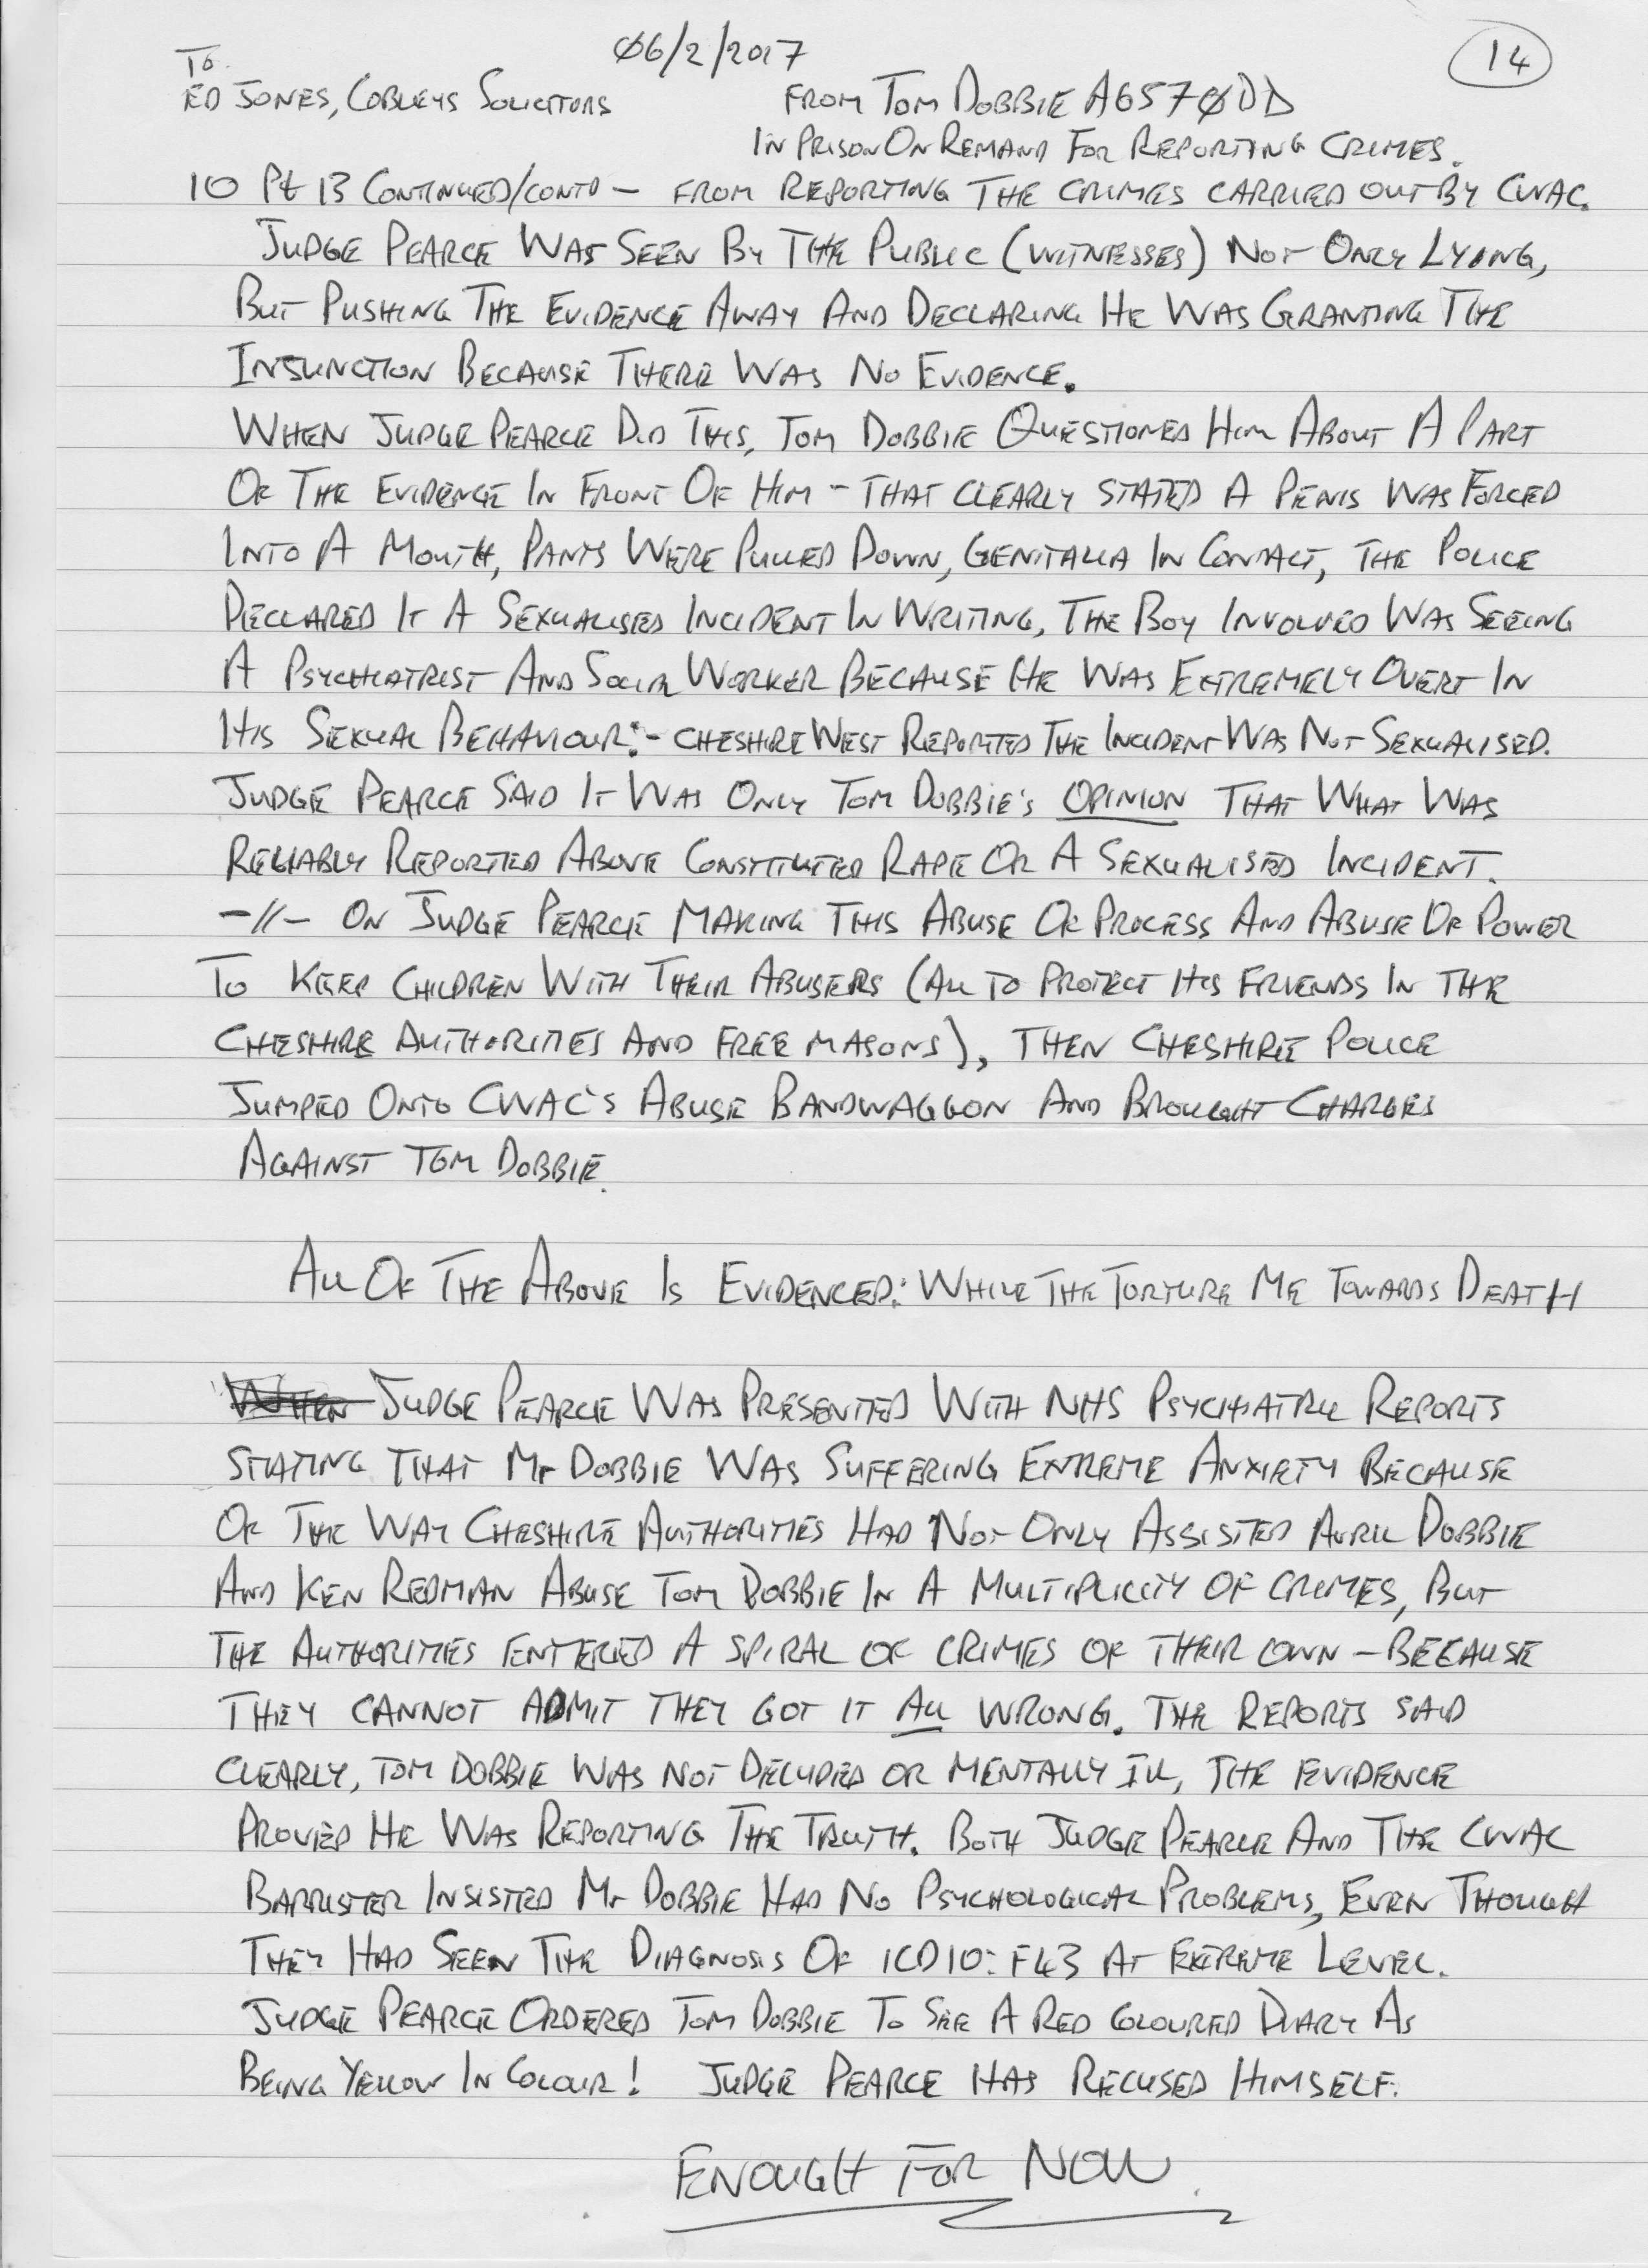 06/2/2017
14
To
ED JONES, COBLEYS SOLICITORS
FROM TOM DOBBIE A6570DD
IN PRISON ON REMAND FOR REPORTING CRIMES.
10 Pt 13 CONTINUED/CONTD – FROM REPORTING THE CRIMES CARRIED OUT BY CWAC.
JUDGE PEARCE WAS SEEN BY THE PUBLIC (WITNESSES) NOT ONLY LYING,
BUT PUSHING THE EVIDENCE AWAY AND DECLARING HE WAS GRANTING THE
INJUNCTION BECAUSE THERE WAS NO EVIDENCE.
WHEN JUDGE PEARCE DID THIS, TOM DOBBIE QUESTIONED HIM ABOUT A PART
OF THE EVIDENCE IN FRONT OF HIM – THAT CLEARLY STATED A PENIS WAS FORCED
INTO A MOUTH, PANTS WERE PULLED DOWN, GENITALIA IN CONTACT, THE POLICE
DECLARED IT A SEXUALISED INCIDENT IN WRITING, THE BOY INVOLVED WAS SEEING
A PSYCHIATRIST AND SOCIAL WORKER BECAUSE HE WAS EXTREMELY OVERT IN
HIS SEXUAL BEHAVIOUR:- CHESHIRE WEST REPORTED THE INCIDENT WAS NOT SEXUALISED.
JUDGE PEARCE SAID IT WAS ONLY TOM DOBBIE'S OPINION THAT WHAT WAS
RELIABLY REPORTED ABOVE CONSTITUTED RAPE OR A SEXUALISED INCIDENT.
–//– ON JUDGE PEARCE MAKING THIS ABUSE OF PROCESS AND ABUSE OF POWER
TO KEEP CHILDREN WITH THEIR ABUSERS (ALL TO PROTECT HIS FRIENDS IN THE
CHESHIRE AUTHORITIES AND FREE MASONS), THEN CHESHIRE POLICE
JUMPED ONTO CWAC'S ABUSE BANDWAGGON AND BROUGHT CHARGES
AGAINST TOM DOBBIE.
ALL OF THE ABOVE IS EVIDENCED: WHILE THE TORTURE ME TOWARDS DEATH
WHEN JUDGE PEARCE WAS PRESENTED WITH NHS PSYCHIATRIC REPORTS
STATING THAT Mr DOBBIE WAS SUFFERING EXTREME ANXIETY BECAUSE
OF THE WAY CHESHIRE AUTHORITIES HAD NOT ONLY ASSISTED AVRIL DOBBIE
AND KEN REDMAN ABUSE TOM DOBBIE IN A MULTIPLICITY OF CRIMES, BUT
THE AUTHORITIES ENTERED A SPIRAL OF CRIMES OF THEIR OWN – BECAUSE
THEY CANNOT ADMIT THEY GOT IT ALL WRONG. THE REPORTS SAID
CLEARLY, TOM DOBBIE WAS NOT DELUDED OR MENTALLY ILL, THE EVIDENCE
PROVED HE WAS REPORTING THE TRUTH. BOTH JUDGE PEARCE AND THE CWAC
BARRISTER INSISTED Mr DOBBIE HAD NO PSYCHOLOGICAL PROBLEMS, EVEN THOUGH
THEY HAD SEEN THE DIAGNOSIS OF ICD10: F43 AT EXTREME LEVEL.
JUDGE PEARCE ORDERED TOM DOBBIE TO SEE A RED COLOURED DIARY AS
BEING YELLOW IN COLOUR! JUDGE PEARCE HAS RECUSED HIMSELF.
ENOUGH FOR NOW.